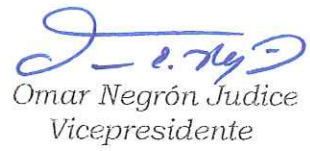 Omar Negrón Judice
Vicepresidente